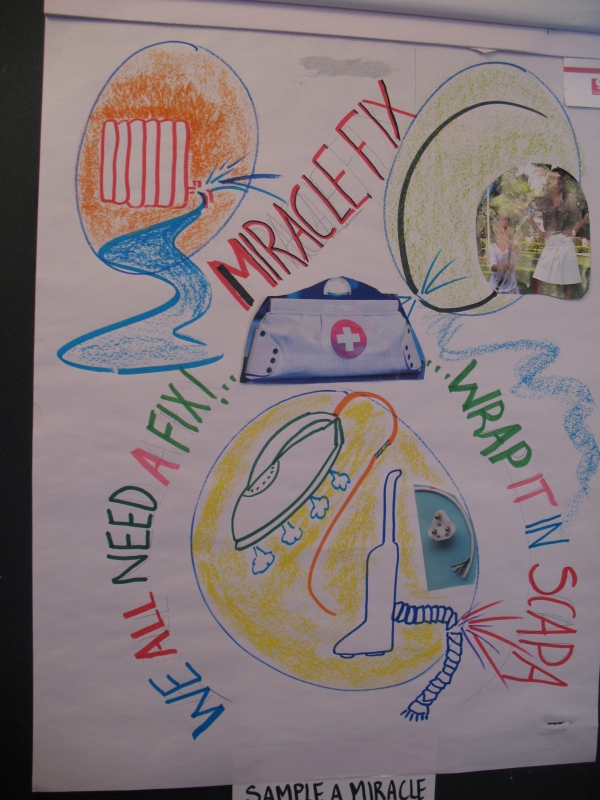 MIRACLE FIX
WE ALL NEED A FIX!...
...WRAP IT IN SCAPA
SAMPLE A MIRACLE